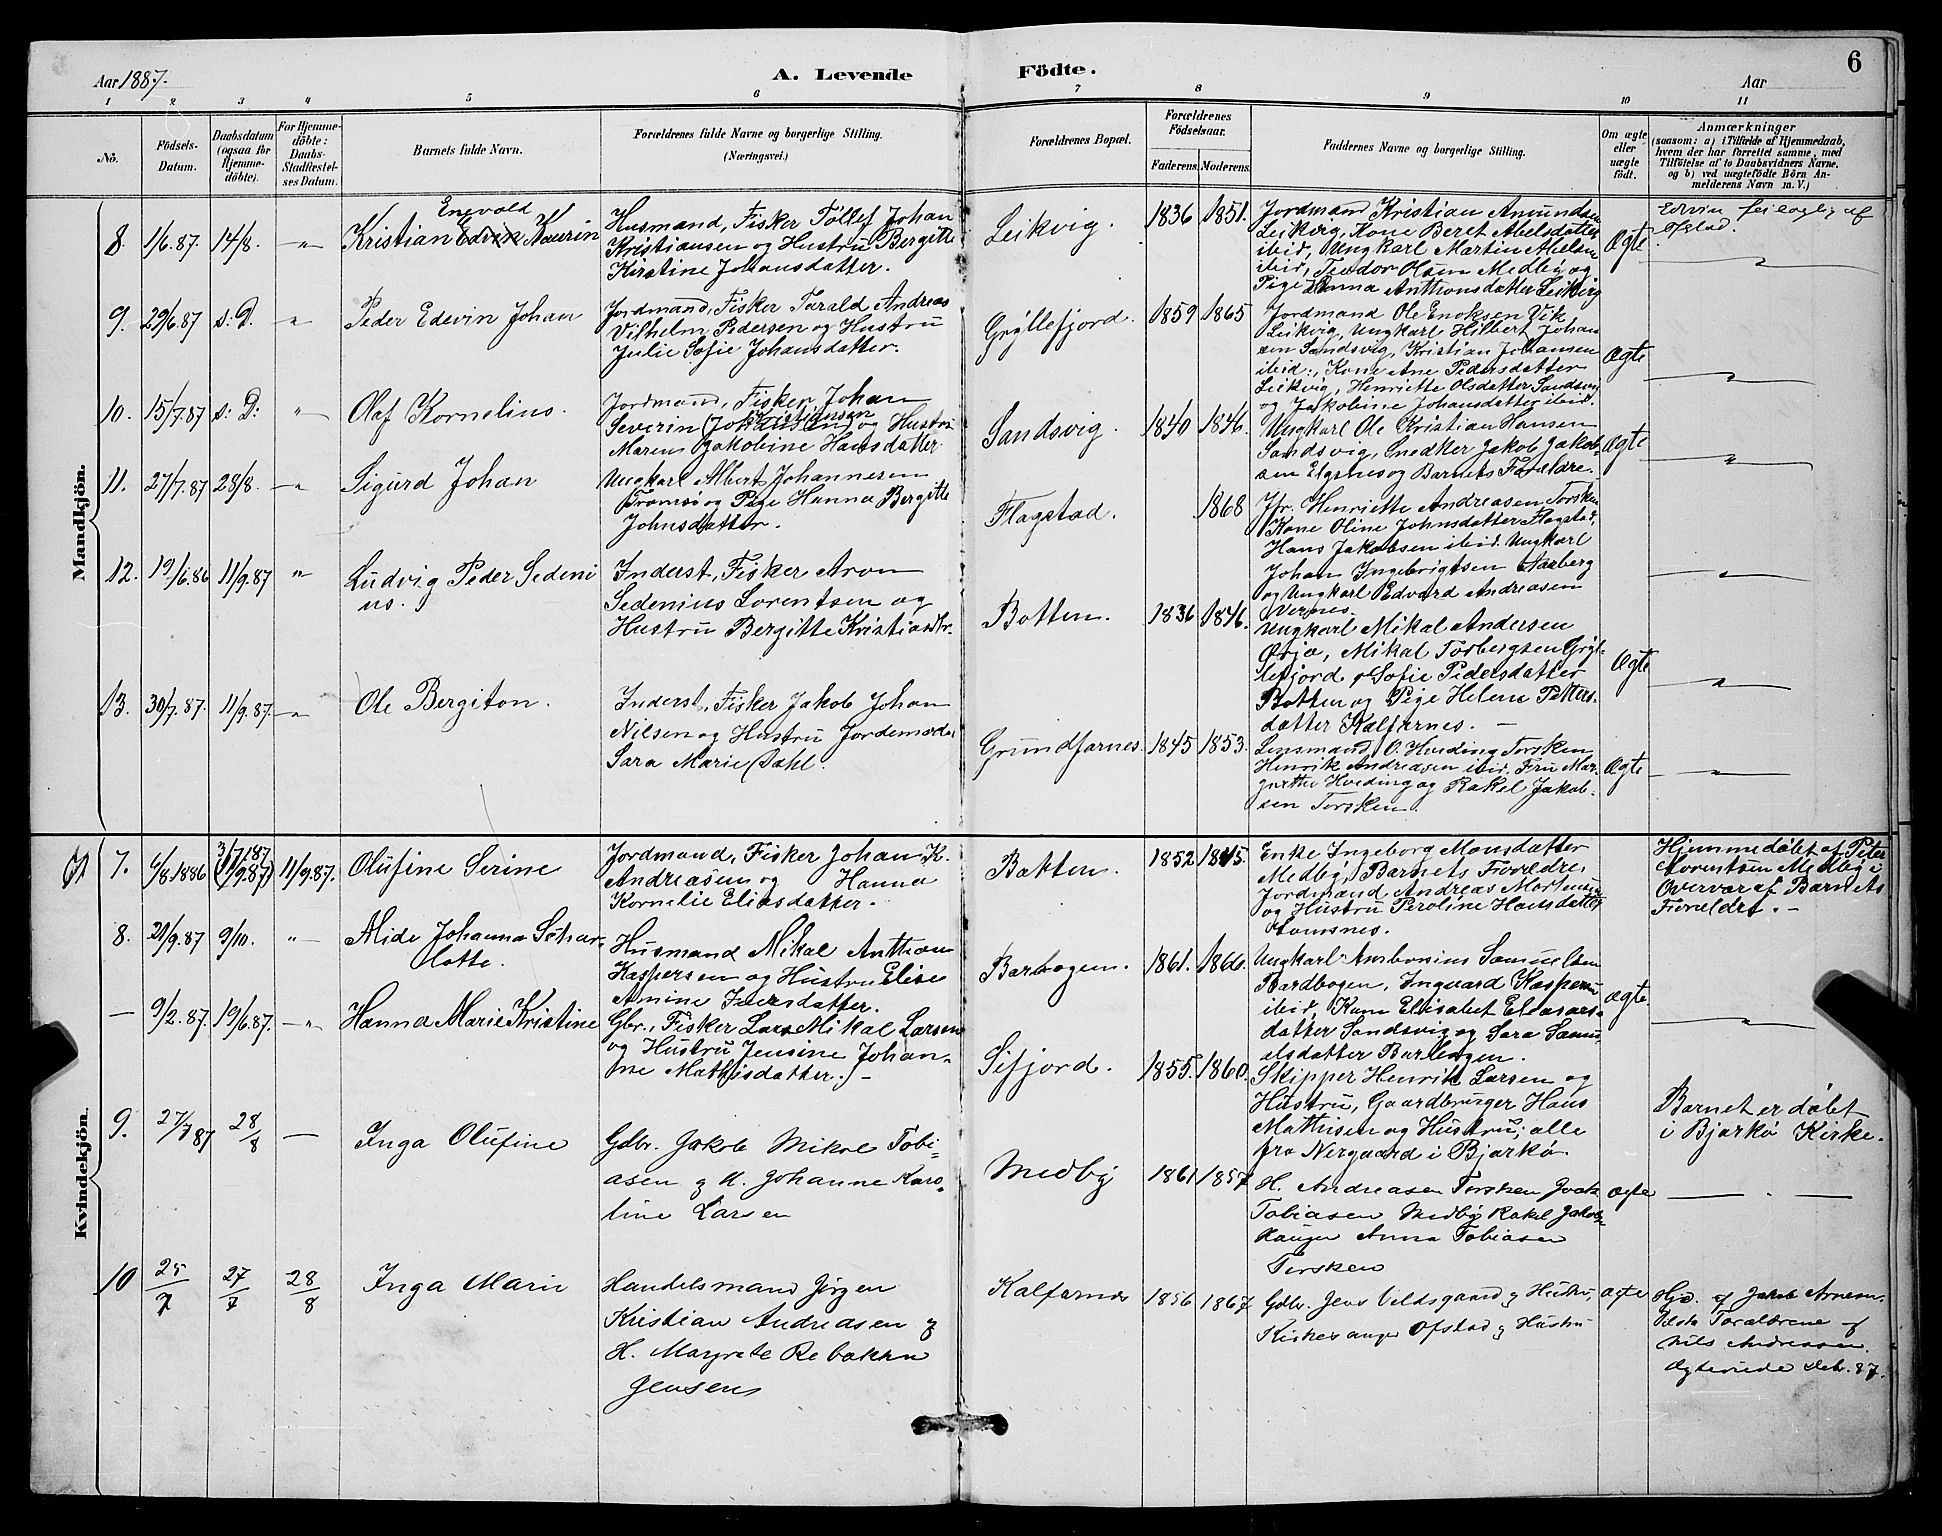 Aar 1887.
A. Levende Födte.
Aar
6
1 2 3 4 5 6 7 8 9 10 11
No.
Födsels-Datum.
Daabsdatum (ogsaa for Hjemme-döbte).
For Hjemme-döbte: Daabs-Stadfæstel-ses Datum.
Barnets fulde Navn.
Forældrenes fulde Navne og borgerlige Stilling.
(Næringsvei.)
Forældrenes Bopæl.
Forældrenes Födselsaar.
Faderens. Moderens.
Faddernes Navne og borgerlige Stilling.
Om ægte eller uægte födt.
Anmærkninger
(saasom: a) i Tilfælde af Hjemmedaab,
hvem der har forrettet samme, med
Tilföielse af to Daabsvidners Navne.
og b) ved uægtefödte Börn An-
melderens Navn m. V.)
Mandkjön.
8. 1/6.87. 14/8. -"-
Enevold
Kristian Edvin Kaurin
Husmand, Fisker Tollef Johan
Kristiansen og Hustru Bergitte
Kirstine Johansdatter.
Leikvig. 1836 1851.
Jordmand Kristian Amundsen
Leikvig, Kone Beret Abelsdatter
ibid, Ungkarl Martin Abelsen
ibid, Teodor Olsen Medby og
Pige Anna Anthonsdatter Leikvig
Ægte
Edvin feilagtig af
Ofstad.
9. 29/6.87 s. D. "
Peder Edevin Johan
Jordmand, Fisker Tarald Andreas
Vilhelm Pedersen og Hustru
Julie Sofie Johansdatter.
Gryllefjord. 1859 1865
Jordmand Ole Enoksen Vik
Leikvig, Ungkarl Hilbert Johan
sen Sandsvig, Kristian Johansen
ibid:, Kone Ane Pedersdatter
Leikvig, Henriette Olsdatter Sandsvig
og Jakobine Johansdatter ibid.
Ægte
10. 15/7.87 s: D: "
Olaf Kornelius.
Jordmand, Fisker Johan
Kristiansen
Severin (Johansen) og Hustru
Maren Jakobine Hansdatter
Sandsvig. 1840 1846.
Ungkarl Ole Kristian Hansen
Sandsvig, Snedker Jakob Jakob-
sen Elgsnes og Barnets Forældre.
Ægte
11. 27/7.87 28/8. -"
Sigurd Johan
Ungkarl Albert Johannesen
Tromsö og Pige Hanna Bergitte
Johnsdatter.
Flagstad. 1868
Jfr. Henriette Andreasen Torsken
Kone Oline Johnsdatter Flagstad,
Hans Jakobsen ibid. Ungkarl
Johan Ingebrigtsen Aarberg
og Ungkarl Edvard Andreasen
Vernes.
12. 19/6.86 11/9.87 "
Ludvig Peder Sedeni
us.
Inderst, Fisker Aron
Sedenius Lorentsen og
Hustru Bergitte Kristiansdtr.
Botten. 1836 1846.
Ungkarl Mikal Andersen
Mikal Torbergsen Gryl-
lefjord, Sofie Pedersdatter
Botten og Pige Helene Petters-
datter Kalfarnes. -
Ægte
13. 30/7.87. 11/9.87. -"-
Ole Bergiton.
Inderst, Fisker Jakob Johan
Nilsen og Hustru Jordemoder
Sara Marie Dahl.
Grundfarnes 1845 1853.
Lensmand O. Hveding Torsken
Henrik Andreasen ibid. Fru Mar-
grethe Hveding og Rakel Jakob-
sen Torsken.
Ægte
Kvindekjön.
7. 6/8.1886 3/7.87 (11/9.87) 11/9.87.
Olufine Serine
Jordmand, Fisker Johan K.
Andreasen og Hanna
Kornelie Eliasdatter.
Bakten. 1852 1845.
Enke Ingeborg Monsdatter
Medby, Barnets Forældre,
Jordmand Andreas Mortensen
og Hustru Peroline Hansdatter
Hjemmedöbt af Peter
Lorentsen Medby i
Overvær af Barnets
Forældre. -
8. 21/9.87 9/10. "-
Alide Johanna Schar-
lotte.
Husmand Mikal Anthon
Kaspersen og Hustru Elise
Amine Iversdatter.
Barbogen. 1861. 1866.
Ungkarl Ambrosius Samuelsen
Bardbogen, Ingvard Kaspersen
ibid, Kone Elisabet Eleasars-
datter Sandsvig og Sara Samu
elsdatter Barbogen.
ægte
- 9/2.87. 19/6.87. -"
Hanna Marie Kristine
Gbr., Fisker Lars Mikal Larsen
og Hustru Jensine Johan-
ne Mathisdatter. -
Sifjord. 1855. 1860.
Skipper Henrik Larsen og
Hustru, Gaardbruger Hans
Mathisen og Hustru; alle
fra Nergaard i Bjarkö.
Barnet er döbt
i Bjarkö Kirke.
9. 27/7 87 28/8 —
Inga Olufine
Gdbr. Jakob Mikal Tobi-
asen og H. Johanne Karo-
line Larsen
Medby 1861 1857
H. Andreasen Torsken
Tobiasen Medby Rakel Jakobs
Kauger Anna Tobiasen
Torsken
ægte
10 25/7 27/7 28/8
Inga Marie
Handelsmand Jörgen
Kristian Andreasen og
H. Margrete Rebakka
Jensen
Kalfarnes 1856 1867
Gdbr. Jens Veldsgaard og Hustru,
Kirkesanger Ofstad og Hustru
ægte
Hjd. af Jakob Arnesen.
Forældrene og
Nils Andreasen.
Ægteviede 87.